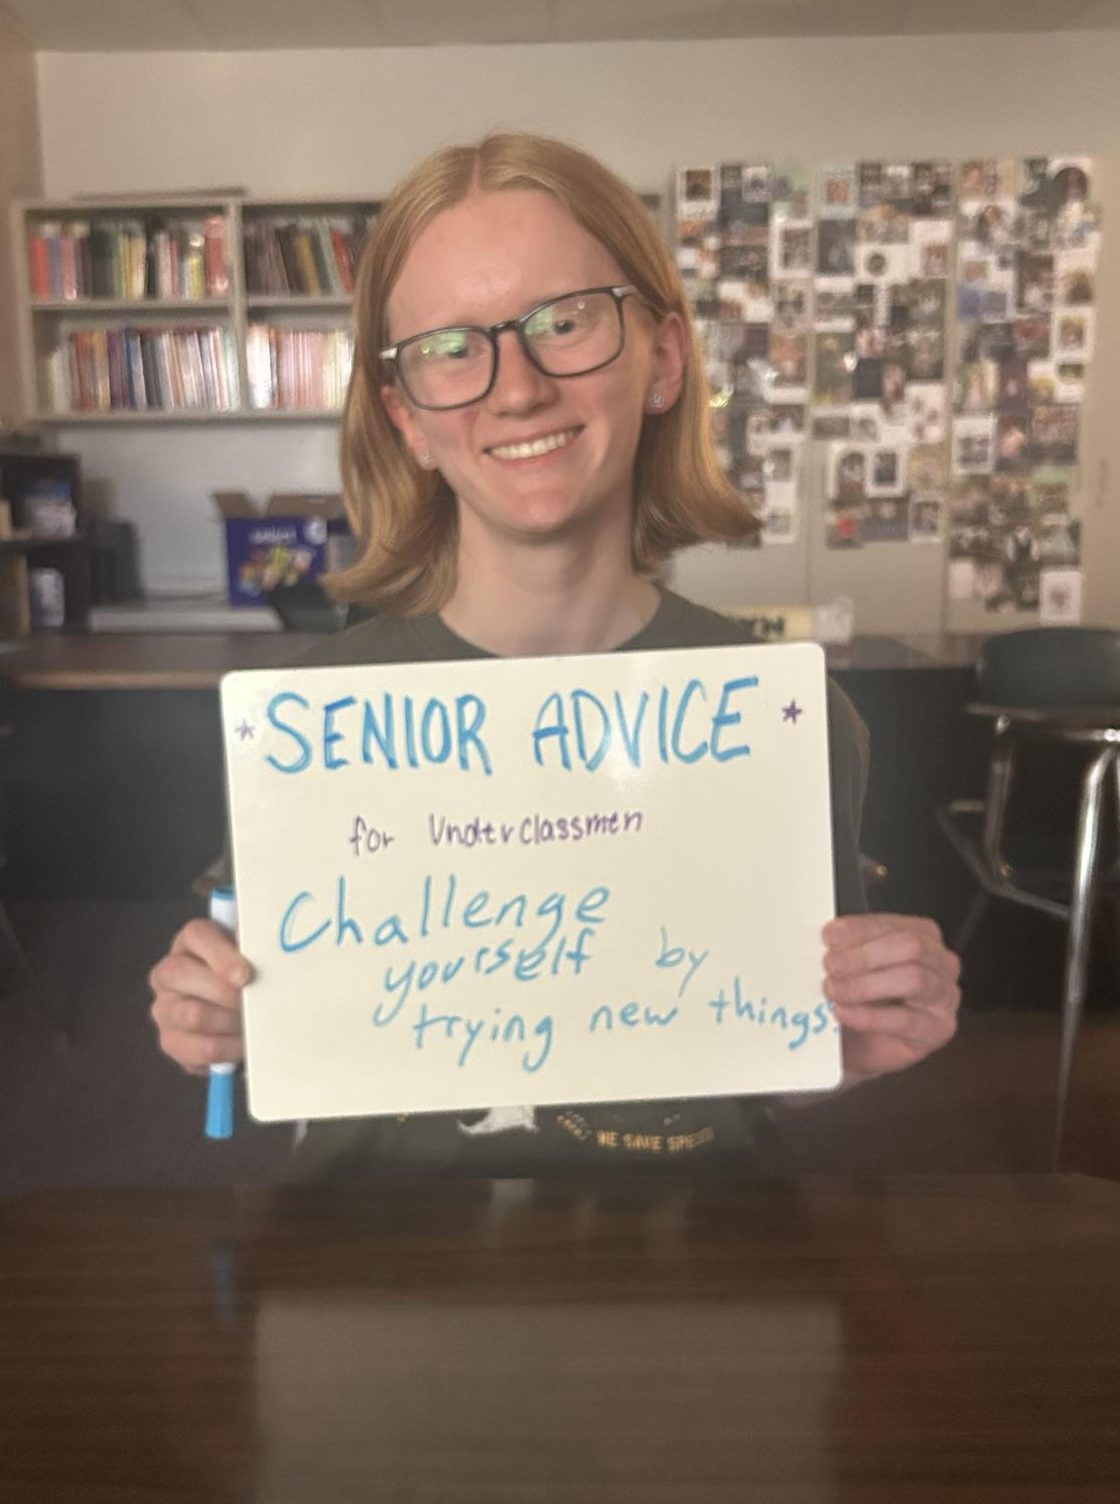 * SENIOR ADVICE *
for Underclassmen
Challenge
yourself by
trying new things.
WE SAVE